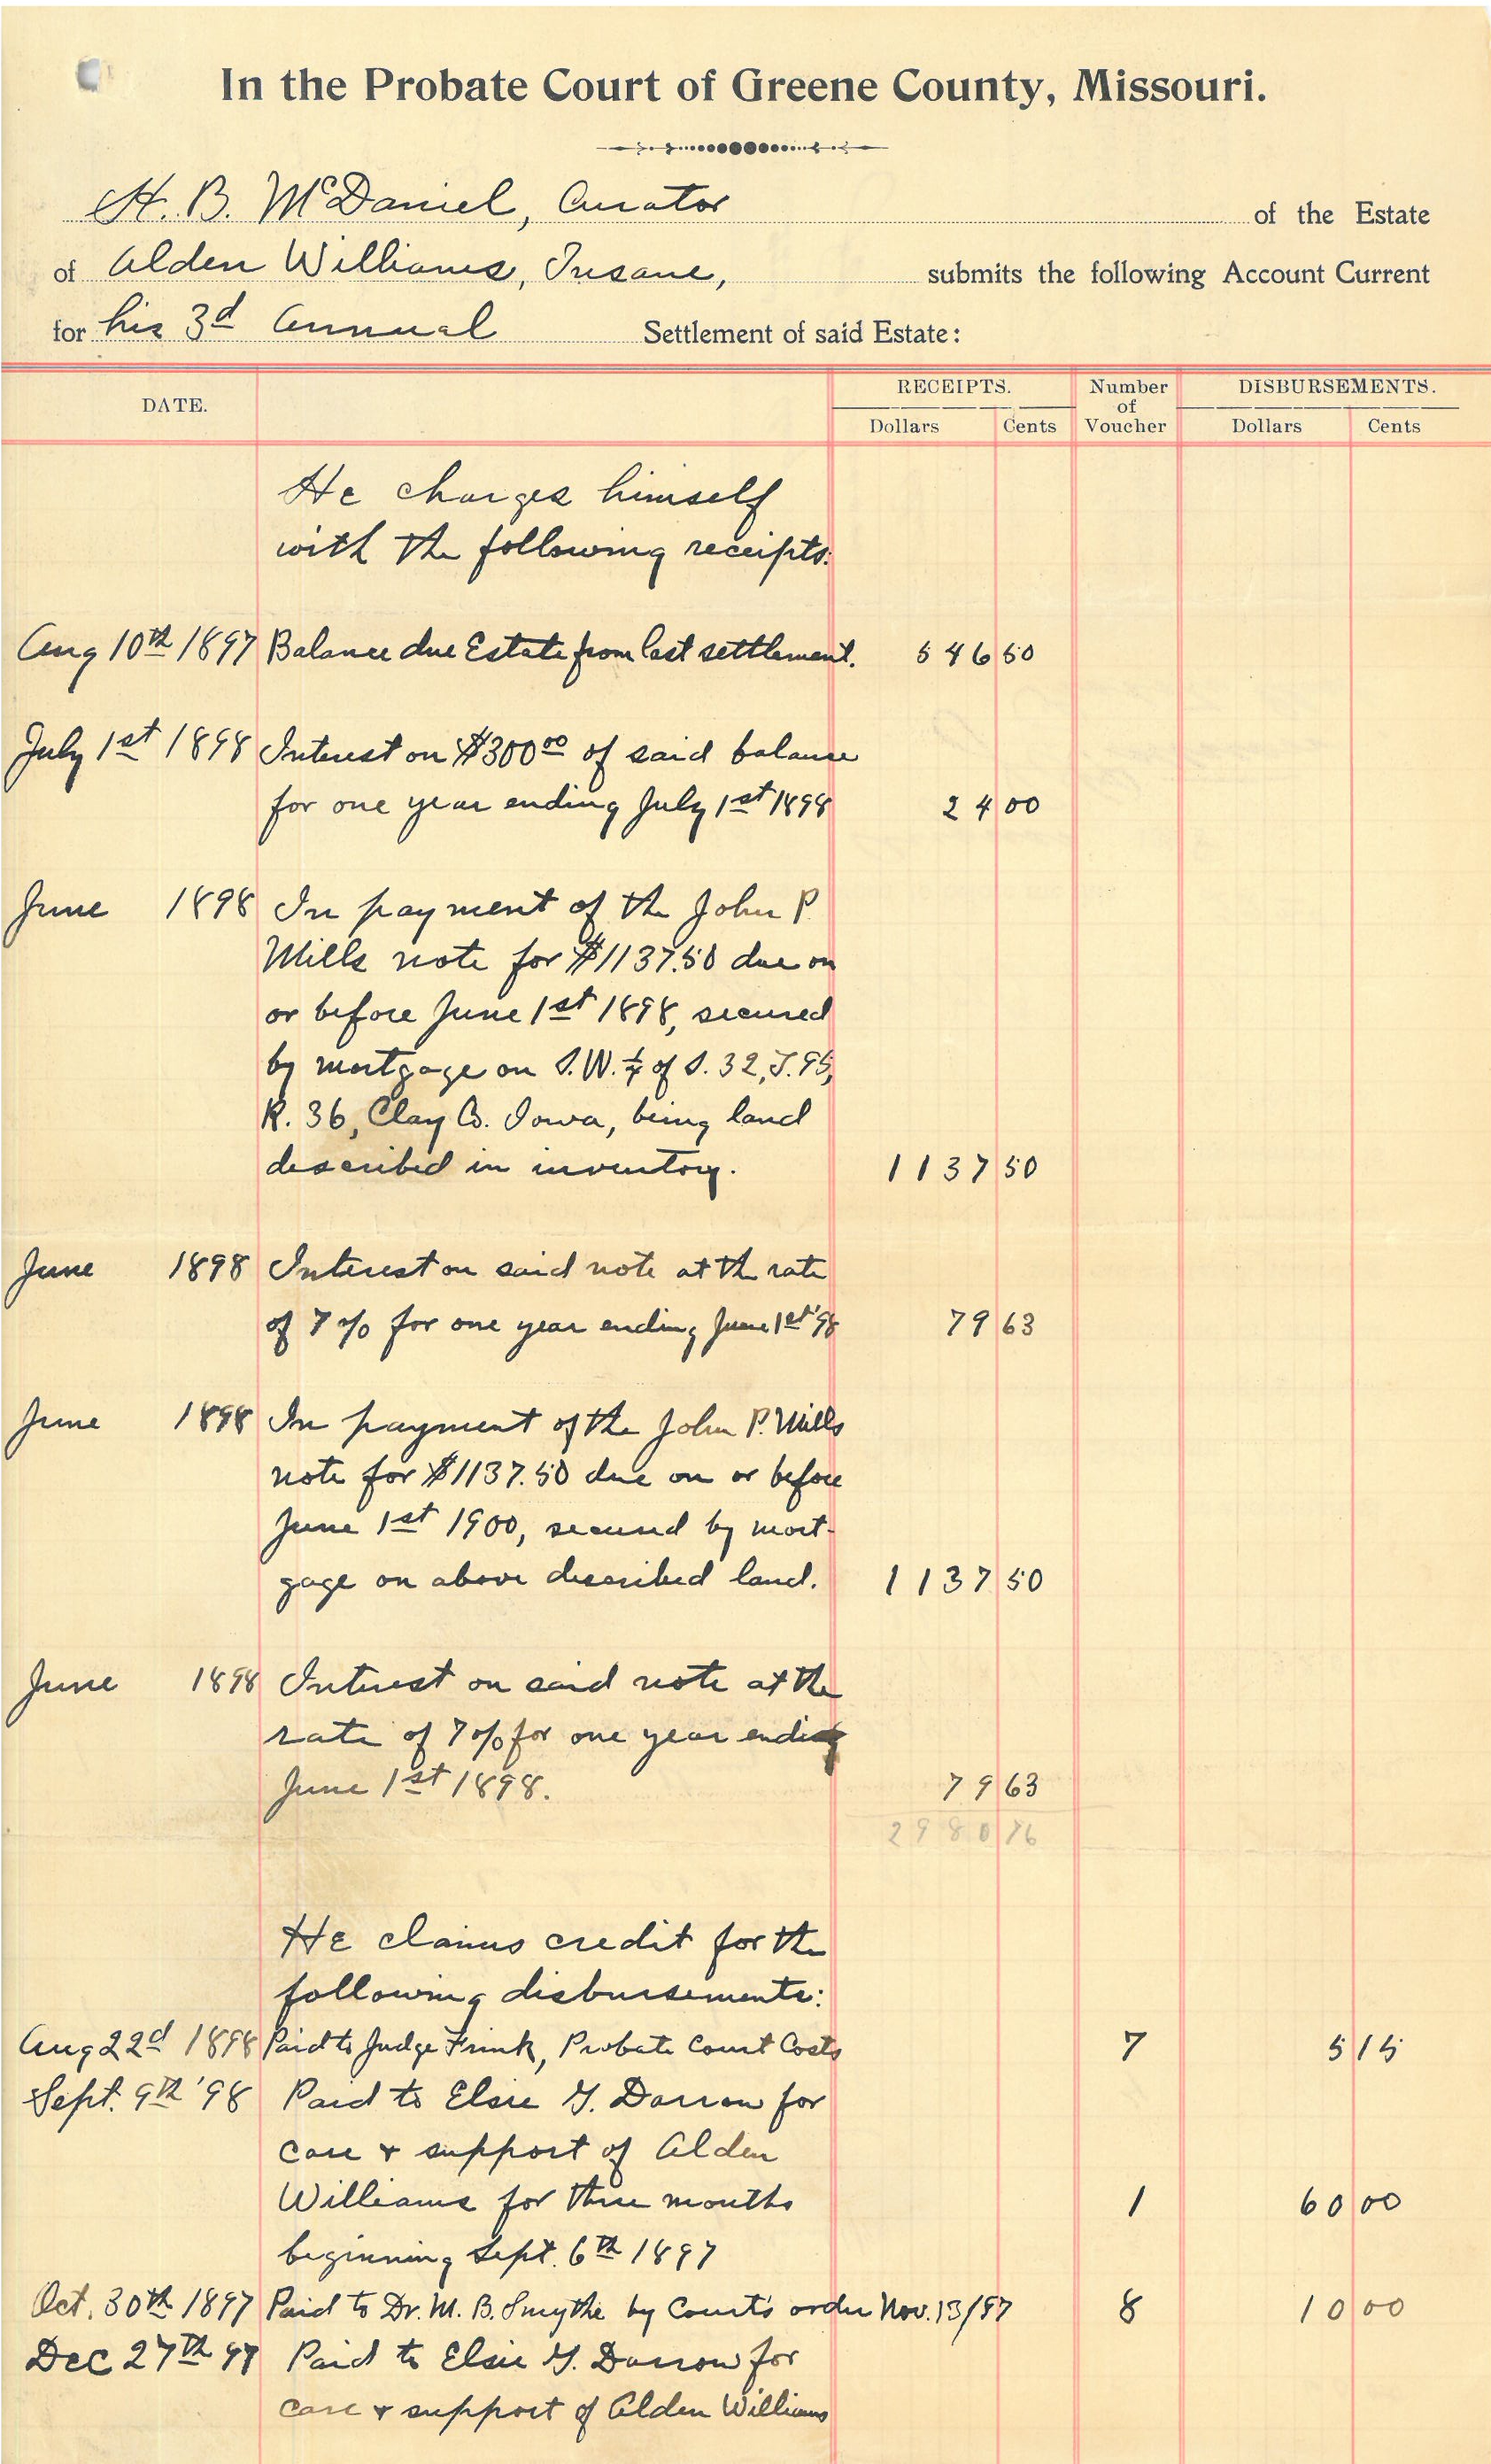 In the Probate Court of Greene County, Missouri.
H. B. McDaniel, Curator of the Estate
of Alden Williams, Insane, submits the following Account Current
for his 3d Annual Settlement of said Estate:
DATE. RECEIPTS. Number of Voucher DISBURSEMENTS.
Dollars Cents Dollars Cents
He charges himself
with the following receipts:
Aug 10th 1897 Balance due Estate from last settlement. 546 50
July 1st 1898 Interest on $300 00 of said balance
for one year ending July 1st 1898 24 00
June 1898 In payment of the John P.
Mills note for $1137.50 due on
or before June 1st 1898, secured
by mortgage on S.W. 1/4 of S. 32, T. 95,
R. 36, Clay Co. Iowa, being land
described in inventory. 1137 50
June 1898 Interest on said note at the rate
of 7% for one year ending June 1st '98 79 63
June 1898 In payment of the John P. Mills
note for $1137.50 due on or before
June 1st 1900, secured by mort-
gage on above described land. 1137 50
June 1898 Interest on said note at the
rate of 7% for one year ending
June 1st 1898. 79 63
2980 76
He claims credit for the
following disbursements:
Aug 22d 1898 Paid to Judge Frink, Probate Court Costs 7 5 15
Sept. 9th '98 Paid to Elsie G. Darrow for
care & support of Alden
Williams for three months 1 60 00
beginning Sept. 6th 1897
Oct. 30th 1897 Paid to Dr. M. B. Smythe by Court's order Nov. 13/97 8 10 00
Dec 27th 97 Paid to Elsie G. Darrow for
care & support of Alden Williams